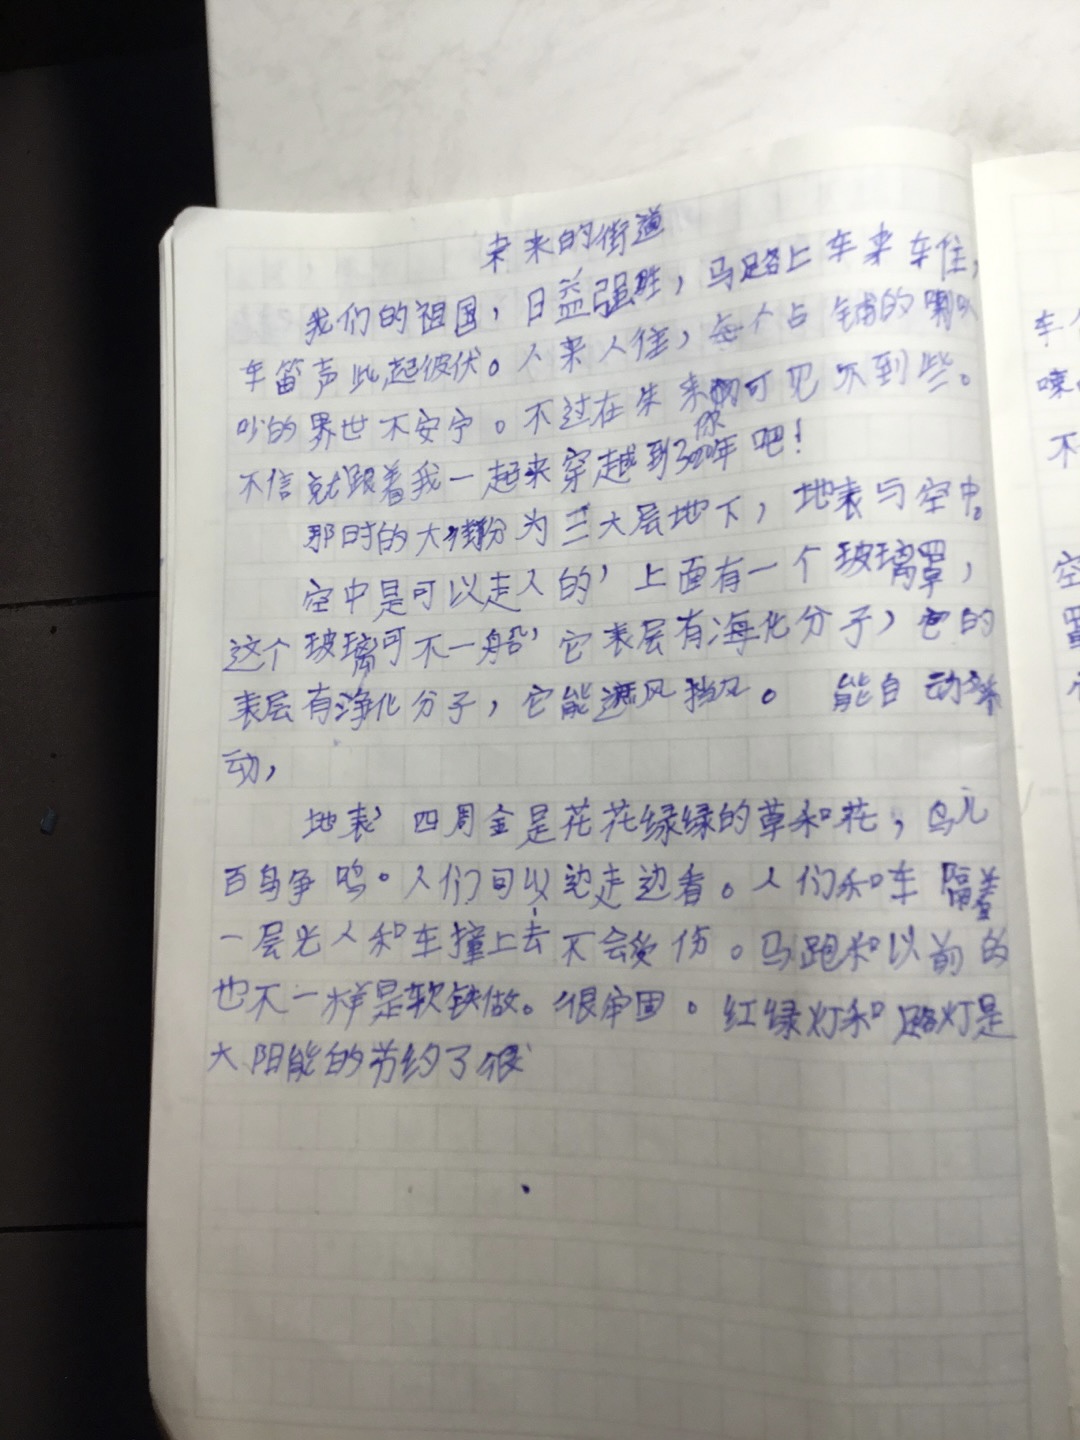 未来的街道
我们的祖国，日益强胜，马路上车来车住，
车笛声此起彼伏。人来人往，每个占铺的喇叭
吵的界世不安宁。不过在未来你可见不到些。
不信就跟着我一起来穿越到3020年吧！
那时的大街分为三大层地下，地表与空中。
空中是可以走人的，上面有一个玻璃罩，
这个玻璃可不一船，它表层有海化分子，它的
表层有净化分子，它能遮风挡风。能自动
动，
地表，四周金是花花绿绿的草和花，鸟儿
百鸟争鸣。人们可以边走边看。人们和车隔着
一层光人和车撞上去不会受伤。马跑和以前的
也不一样是软铁做。很牢固。红绿灯和路灯是
大阳能的节约了很
车
喷
不
空
罩